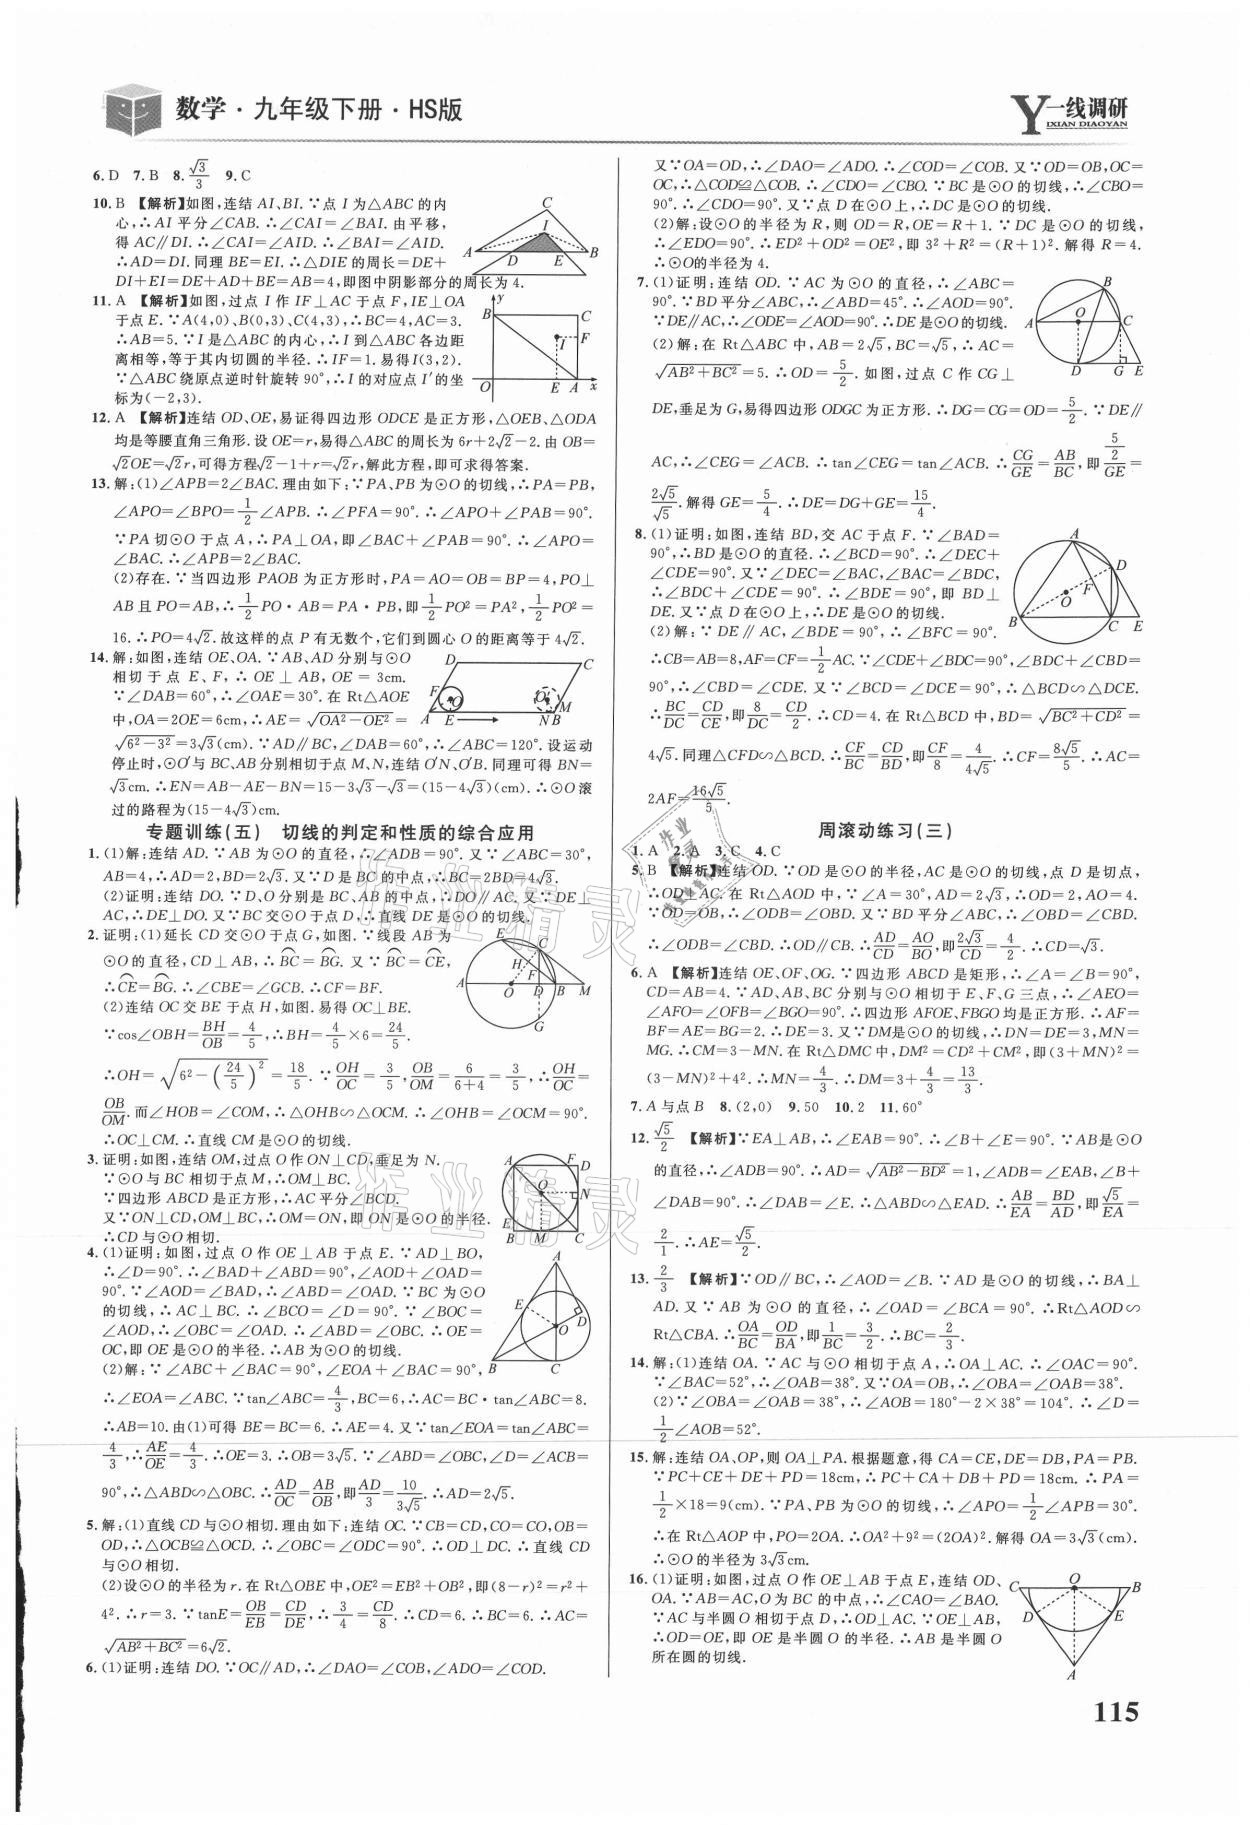 数学·九年级下册·HS版
Y一线调研
YIXIAN DIAOYAN
6. D 7. B 8. √3/3 9. C
10. B 【解析】如图,连结 AI、BI. ∵点 I 为△ABC 的内
心,∴AI 平分∠CAB. ∴∠CAI=∠BAI. 由平移,
得 AC∥DI. ∴∠CAI=∠AID. ∴∠BAI=∠AID.
∴AD=DI. 同理 BE=EI. ∴△DIE 的周长=DE+
DI+EI=DE+AD+BE=AB=4,即图中阴影部分的周长为 4.
11. A 【解析】如图,过点 I 作 IF⊥AC 于点 F,IE⊥OA
于点 E. ∵A(4,0)、B(0,3)、C(4,3),∴BC=4,AC=3.
∴AB=5. ∵I 是△ABC 的内心,∴I 到△ABC 各边距
离相等,等于其内切圆的半径. ∴IF=1. 易得 I(3,2).
∵△ABC 绕原点逆时针旋转 90°,∴I 的对应点 I′的坐
标为(-2,3).
12. A 【解析】连结 OD、OE,易证得四边形 ODCE 是正方形,△OEB、△ODA
均是等腰直角三角形. 设 OE=r,易得△ABC 的周长为 6r+2√2-2. 由 OB=
√2OE=√2r,可得方程√2-1+r=√2r,解此方程,即可求得答案.
13. 解:(1)∠APB=2∠BAC. 理由如下:∵PA、PB 为⊙O 的切线,∴PA=PB,
∠APO=∠BPO=1/2∠APB. ∴∠PFA=90°. ∴∠APO+∠PAB=90°.
∵PA 切⊙O 于点 A,∴PA⊥OA,即∠BAC+∠PAB=90°. ∴∠APO=
∠BAC. ∴∠APB=2∠BAC.
(2)存在. ∵当四边形 PAOB 为正方形时,PA=AO=OB=BP=4,PO⊥
AB 且 PO=AB,∴1/2PO·AB=PA·PB,即1/2PO²=PA²,1/2PO²=
16. ∴PO=4√2. 故这样的点 P 有无数个,它们到圆心 O 的距离等于 4√2.
14. 解:如图,连结 OE、OA. ∵AB、AD 分别与⊙O
相切于点 E、F,∴OE⊥AB,OE=3cm.
∵∠DAB=60°,∴∠OAE=30°. 在 Rt△AOE
中,OA=2OE=6cm,∴AE=√(OA²-OE²)=
√(6²-3²)=3√3(cm). ∵AD∥BC,∠DAB=60°,∴∠ABC=120°. 设运动
停止时,⊙O′与 BC、AB 分别相切于点 M、N,连结 O′N、O′B. 同理可得 BN=
√3cm. ∴EN=AB-AE-BN=15-3√3-√3=(15-4√3)(cm). ∴⊙O 滚
过的路程为(15-4√3)cm.
专题训练(五) 切线的判定和性质的综合应用
1. (1)解:连结 AD. ∵AB 为⊙O 的直径,∴∠ADB=90°. 又∵∠ABC=30°,
AB=4,∴AD=2,BD=2√3. 又∵D 是 BC 的中点,∴BC=2BD=4√3.
(2)证明:连结 DO. ∵D、O 分别是 BC、AB 的中点,∴DO∥AC. 又∵DE⊥
AC,∴DE⊥DO. 又∵BC 交⊙O 于点 D,∴直线 DE 是⊙O 的切线.
2. 证明:(1)延长 CD 交⊙O 于点 G,如图. ∵线段 AB 为
⊙O 的直径,CD⊥AB,∴BC⌒=BG⌒. 又∵BC⌒=CE⌒,
∴CE⌒=BG⌒. ∴∠CBE=∠GCB. ∴CF=BF.
(2)连结 OC 交 BE 于点 H,如图. 易得 OC⊥BE.
∵cos∠OBH=BH/OB=4/5,∴BH=4/5×6=24/5.
∴OH=√(6²-(24/5)²)=18/5. ∵OH/OC=3/5,OB/OM=6/(6+4)=3/5,∴OH/OC=
OB/OM. 而∠HOB=∠COM,∴△OHB∽△OCM. ∴∠OHB=∠OCM=90°.
∴OC⊥CM. ∴直线 CM 是⊙O 的切线.
3. 证明:如图,连结 OM,过点 O 作 ON⊥CD,垂足为 N.
∵⊙O 与 BC 相切于点 M,∴OM⊥BC.
∵四边形 ABCD 是正方形,∴AC 平分∠BCD.
又∵ON⊥CD,OM⊥BC,∴OM=ON,即 ON 是⊙O 的半径.
∴CD 与⊙O 相切.
4. (1)证明:如图,过点 O 作 OE⊥AB 于点 E. ∵AD⊥BO,
∴∠D=90°. ∴∠BAD+∠ABD=90°,∠AOD+∠OAD=
90°. ∵∠AOD=∠BAD,∴∠ABD=∠OAD. ∵BC 为⊙O
的切线,∴AC⊥BC. ∴∠BCO=∠D=90°. ∵∠BOC=
∠AOD,∴∠OBC=∠OAD. ∴∠ABD=∠OBC. ∴OE=
OC,即 OE 是⊙O 的半径. ∴AB 为⊙O 的切线.
(2)解:∵∠ABC+∠BAC=90°,∠EOA+∠BAC=90°,
∴∠EOA=∠ABC. ∵tan∠ABC=4/3,BC=6,∴AC=BC·tan∠ABC=8.
∴AB=10. 由(1)可得 BE=BC=6. ∴AE=4. 又∵tan∠EOA=tan∠ABC=
4/3,∴AE/OE=4/3. ∴OE=3. ∴OB=3√5. ∵∠ABD=∠OBC,∠D=∠ACB=
90°,∴△ABD∽△OBC. ∴AD/OC=AB/OB,即AD/3=10/3√5. ∴AD=2√5.
5. 解:(1)直线 CD 与⊙O 相切. 理由如下:连结 OC. ∵CB=CD,CO=CO,OB=
OD,∴△OCB≌△OCD. ∴∠OBC=∠ODC=90°. ∴OD⊥DC. ∴直线 CD
与⊙O 相切.
(2)设⊙O 的半径为 r. 在 Rt△OBE 中,OE²=EB²+OB²,即(8-r)²=r²+
4². ∴r=3. ∵tanE=OB/EB=CD/DE,∴3/4=CD/8. ∴CD=6. ∴BC=6. ∴AC=
√(AB²+BC²)=6√2.
6. (1)证明:连结 DO. ∵OC∥AD,∴∠DAO=∠COB,∠ADO=∠COD.
又∵OA=OD,∴∠DAO=∠ADO. ∴∠COD=∠COB. 又∵OD=OB,OC=
OC,∴△COD≌△COB. ∴∠CDO=∠CBO. ∵BC 是⊙O 的切线,∴∠CBO=
90°. ∴∠CDO=90°. 又∵点 D 在⊙O 上,∴DC 是⊙O 的切线.
(2)解:设⊙O 的半径为 R,则 OD=R,OE=R+1. ∵DC 是⊙O 的切线,
∴∠EDO=90°. ∴ED²+OD²=OE²,即 3²+R²=(R+1)². 解得 R=4.
∴⊙O的半径为 4.
7. (1)证明:连结 OD. ∵AC 为⊙O 的直径,∴∠ABC=
90°. ∵BD 平分∠ABC,∴∠ABD=45°. ∴∠AOD=90°.
∵DE∥AC,∴∠ODE=∠AOD=90°. ∴DE 是⊙O 的切线.
(2)解:在 Rt△ABC 中,AB=2√5,BC=√5,∴AC=
√(AB²+BC²)=5. ∴OD=5/2. 如图,过点 C 作 CG⊥
DE,垂足为 G,易得四边形 ODGC 为正方形. ∴DG=CG=OD=5/2. ∵DE∥
AC,∴∠CEG=∠ACB. ∴tan∠CEG=tan∠ACB. ∴CG/GE=AB/BC,即(5/2)/GE=
2√5/√5. 解得 GE=5/4. ∴DE=DG+GE=15/4.
8. (1)证明:如图,连结 BD,交 AC 于点 F. ∵∠BAD=
90°,∴BD 是⊙O 的直径. ∴∠BCD=90°. ∴∠DEC+
∠CDE=90°. 又∵∠DEC=∠BAC,∠BAC=∠BDC,
∴∠BDC+∠CDE=90°. ∴∠BDE=90°,即 BD⊥
DE. 又∵点 D 在⊙O 上,∴DE 是⊙O 的切线.
(2)解:∵DE∥AC,∠BDE=90°,∴∠BFC=90°.
∴CB=AB=8,AF=CF=1/2AC. ∵∠CDE+∠BDC=90°,∠BDC+∠CBD=
90°,∴∠CBD=∠CDE. 又∵∠BCD=∠DCE=90°,∴△BCD∽△DCE.
∴BC/DC=CD/CE,即8/DC=CD/2. ∴CD=4. 在 Rt△BCD 中,BD=√(BC²+CD²)=
4√5. 同理△CFD∽△BCD. ∴CF/BC=CD/BD,即CF/8=4/4√5. ∴CF=8√5/5. ∴AC=
2AF=16√5/5.
周滚动练习(三)
1. A 2. A 3. C 4. C
5. B 【解析】连结 OD. ∵OD 是⊙O 的半径,AC 是⊙O 的切线,点 D 是切点,
∴OD⊥AC. 在 Rt△AOD 中,∵∠A=30°,AD=2√3,∴OD=2,AO=4.
∵OD=OB,∴∠ODB=∠OBD. 又∵BD 平分∠ABC,∴∠OBD=∠CBD.
∴∠ODB=∠CBD. ∴OD∥CB. ∴AD/CD=AO/BO,即2√3/CD=4/2. ∴CD=√3.
6. A 【解析】连结 OE、OF、OG. ∵四边形 ABCD 是矩形,∴∠A=∠B=90°,
CD=AB=4. ∵AD、AB、BC 分别与⊙O 相切于 E、F、G 三点,∴∠AEO=
∠AFO=∠OFB=∠BGO=90°. ∴四边形 AFOE、FBGO 均是正方形. ∴AF=
BF=AE=BG=2. ∴DE=3. 又∵DM是⊙O 的切线,∴DN=DE=3,MN=
MG. ∴CM=3-MN. 在 Rt△DMC 中,DM²=CD²+CM²,即(3+MN)²=
(3-MN)²+4². ∴MN=4/3. ∴DM=3+4/3=13/3.
7. A 与点 B 8. (2,0) 9. 50 10. 2 11. 60°
12. √5/2 【解析】∵EA⊥AB,∴∠EAB=90°. ∴∠B+∠E=90°. ∵AB是⊙O
的直径,∴∠ADB=90°. ∴AD=√(AB²-BD²)=1,∠ADB=∠EAB,∠B+
∠DAB=90°. ∴∠DAB=∠E. ∴△ABD∽△EAD. ∴AB/EA=BD/AD,即√5/EA=
2/1. ∴AE=√5/2.
13. 2/3 【解析】∵OD∥BC,∴∠AOD=∠B. ∵AD 是⊙O 的切线,∴BA⊥
AD. 又∵AB 为⊙O 的直径,∴∠OAD=∠BCA=90°. ∴Rt△AOD∽
Rt△CBA. ∴OA/BC=OD/BA,即1/BC=3/2. ∴BC=2/3.
14. 解:(1)连结 OA. ∵AC 与⊙O 相切于点 A,∴OA⊥AC. ∴∠OAC=90°.
∵∠BAC=52°,∴∠OAB=38°. 又∵OA=OB,∴∠OBA=∠OAB=38°.
(2)∵∠OBA=∠OAB=38°,∴∠AOB=180°-2×38°=104°. ∴∠D=
1/2∠AOB=52°.
15. 解:连结 OA、OP,则 OA⊥PA. 根据题意,得 CA=CE,DE=DB,PA=PB.
∵PC+CE+DE+PD=18cm,∴PC+CA+DB+PD=18cm. ∴PA=
1/2×18=9(cm). ∵PA、PB 为⊙O 的切线,∴∠APO=1/2∠APB=30°.
∴在 Rt△AOP 中,PO=2OA. ∴OA²+9²=(2OA)². 解得 OA=3√3(cm).
∴⊙O 的半径为 3√3cm.
16. (1)证明:如图,过点 O 作 OE⊥AB 于点 E,连结 OD、
OA. ∵AB=AC,O 为 BC 的中点,∴∠CAO=∠BAO.
∵AC 与半圆 O 相切于点 D,∴OD⊥AC. ∵OE⊥AB,
∴OD=OE,即 OE 是半圆 O 的半径. ∴AB 是半圆 O
所在圆的切线.
115